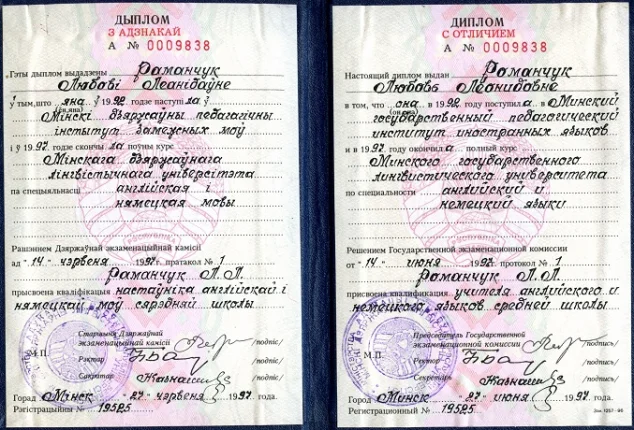 ДЫПЛОМ
З АДЗНАКАЙ
А № 0009838
Гэты дыплом выдадзены Раманчук
Любові Леанідаўне
ў тым, што яна ў 1992 годзе паступіла ў
(ён, яна)
Мінскі дзяржаўны педагагічны
інстытут замежных моў
і ў 1997 годзе скончыла поўны курс
Мінскага дзяржаўнага
лінгвістычнага універсітэта
па спецыяльнасці англійская і
нямецкая мовы
Рашэннем Дзяржаўнай экзаменацыйнай камісіі
ад "14" чэрвеня 1997 г. пратакол № 1
Раманчук Л.Л.
прысвоена кваліфікацыя настаўніка англійскай і
нямецкай моў сярэдняй школы
Старшыня Дзяржаўнай
экзаменацыйнай камісіі /подпіс/
М.П. Рэктар /подпіс/
Сакратар /подпіс/
Горад Мінск "27" чэрвеня 1997 года.
Рэгістрацыйны № 19525
ДИПЛОМ
С ОТЛИЧИЕМ
А № 0009838
Настоящий диплом выдан Романчук
Любовь Леонидовне
в том, что она в 1992 году поступила в Минский
(он, она)
государственный педагогический
институт иностранных языков
и в 1997 году окончила полный курс
Минского государственного
лингвистического университета
по специальности английский и
немецкий языки
Решением Государственной экзаменационной комиссии
от "14" июня 1997 г. протокол № 1
Романчук Л.Л.
присвоена квалификация учителя английского и
немецкого языков средней школы
Председатель Государственной
экзаменационной комиссии /подпись/
М.П. Ректор /подпись/
Секретарь /подпись/
Город Минск "27" июня 1997 года.
Регистрационный № 19525